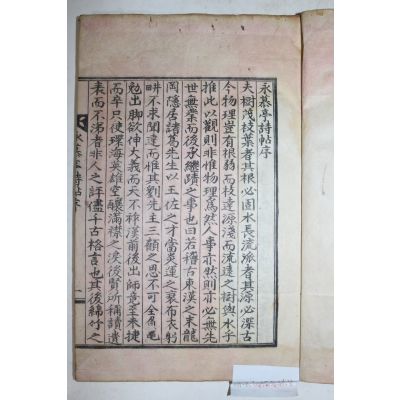 永慕亭詩帖序
夫樹茂枝葉者其根必固水長流派者其源必深古
今物理豈有根弱而枝達源淺而流遠之樹與水乎
推此以觀則非惟物理爲然人事亦然則亦必無先
世無業而後承繼蹟之事也曰若稽古東漢之末龍
岡隱居諸葛先生以王佐之才當炎運之衰布衣躬
畊不求聞達而惟其劉先主三顧之恩不可全爲
勉出脚欲伸大義而天不祚漢前後出師竟至未捷
而卒只使環海英雄空釀滿襟之淚後賢所稱讀遺
表而不涕者非人之評儘千古格言也其後綿竹之
永慕亭詩帖序
一